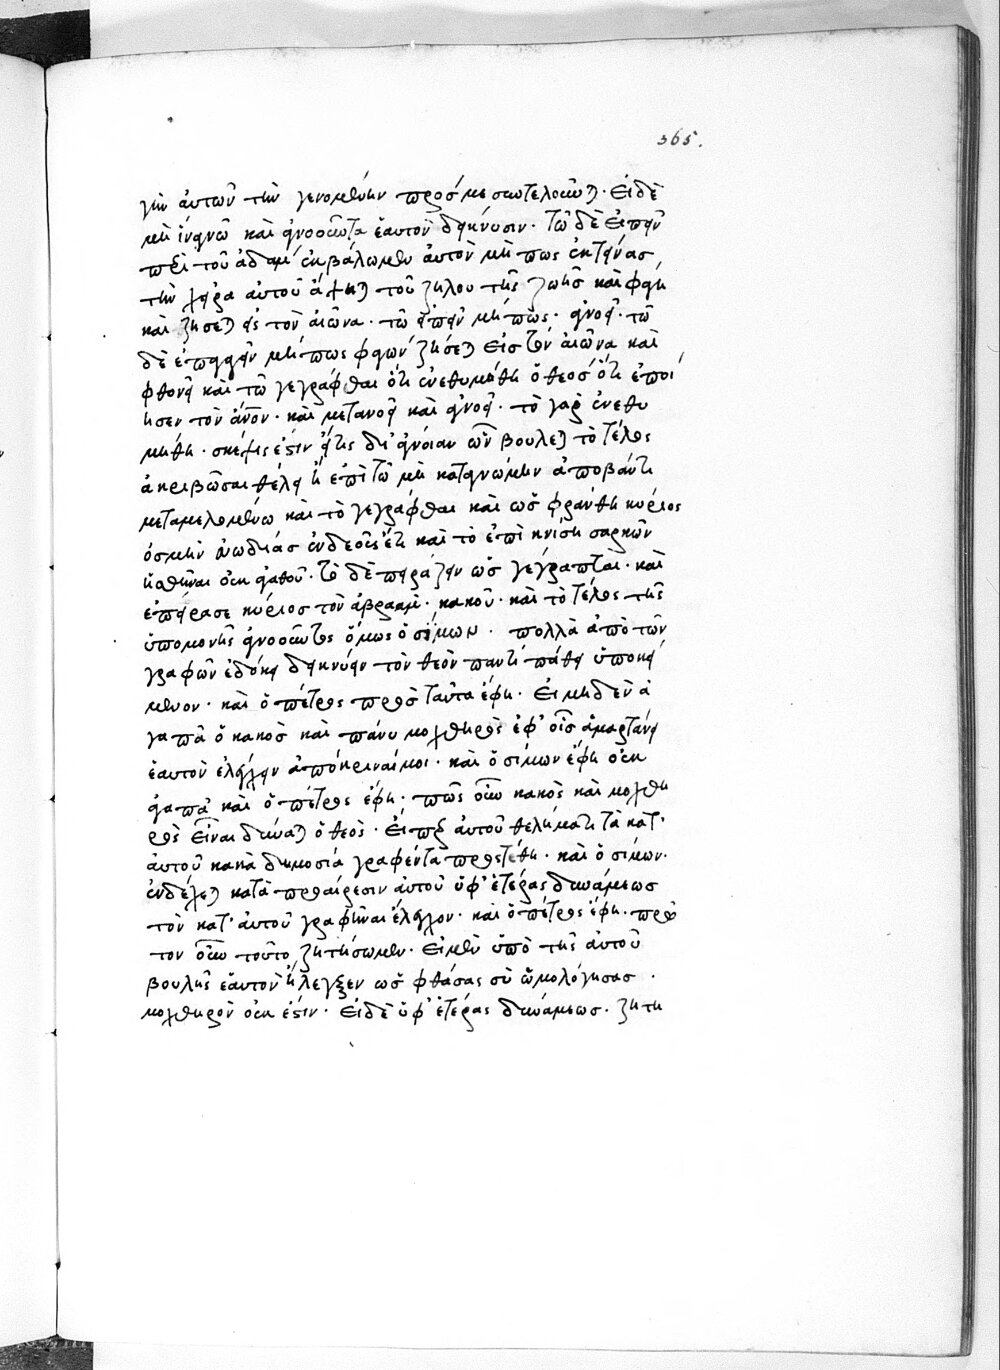 365.
γὴν αὐτῶν τὴν γενομένην πρός με συντελοῦνται· Εἰ δὲ
μὴ ἵνα γνῶ καὶ ἀγνοοῦντα ἑαυτὸν δείκνυσιν· Τῶ δὲ εἰπεῖν
περὶ τοῦ ἀδάμ ἐκβάλωμεν αὐτὸν μή πως ἐκτείνας
τὴν χεῖρα αὐτοῦ ἅψηται τοῦ ξύλου τῆς ζωῆς καὶ φάγη
καὶ ζήσεται εἰς τὸν αἰῶνα· τῶ εἰπεῖν μή πως· ἀγνοεῖ· τῶ
δὲ ἐπαγαγεῖν μή πως φαγὼν ζήσεται εἰς τὸν αἰῶνα καὶ
φθονεῖ καὶ τῶ γεγράφθαι ὅτι ἐνεθυμήθη ὁ θεὸς ὅτι ἐποί
ησεν τὸν ἄνον· καὶ μετανοεῖ καὶ ἀγνοεῖ· τὸ γὰρ ἐνεθυ
μήθη· σκέψις ἐστιν ᾗ τις δι' ἄγνοιαν ὧν βούλεται τὸ τέλος
ἀκριβῶσαι θέλει ἢ ἐπὶ τῶ μὴ κατὰ γνώμην ἀποβάντι
μεταμελομένω καὶ τὸ γεγράφθαι καὶ ὠσφράνθη κύριος
ὀσμὴν εὐωδίας ἐνδεοῦς ἐστι καὶ τὸ ἐπὶ κνίση σαρκῶν
ἡσθῆναι οὐκ ἀγαθοῦ· Τὸ δὲ πειράζειν ὡς γέγραπται· καὶ
ἐπείρασε κύριος τὸν ἀβραάμ· κακοῦ· καὶ τὸ τέλος τῆς
ὑπομονῆς ἀγνοοῦντος ὅμως ὁ σίμων· πολλὰ ἀπὸ τῶν
γραφῶν ἐδόκει δεικνύειν τὸν θεὸν παντὶ πάθει ὑποκεί
μενον· καὶ ὁ πέτρος πρὸς ταῦτα ἔφη· Εἰ μηδὲν ἀ
γαπᾶ ὁ κακὸς καὶ πάνυ μοχθηρὸς ἐφ' οἷς ἁμαρτάνει
ἑαυτὸν ἐλέγχειν ἀπόκριναί μοι· καὶ ὁ σίμων ἔφη οὐκ
ἀγαπᾶ καὶ ὁ πέτρος ἔφη· πῶς οὖν κακὸς καὶ μοχθη
ρὸς εἶναι δύναται ὁ θεὸς· Εἴπερ αὐτοῦ θελήματι τὰ κατ'
αὐτοῦ κακὰ δημοσία γραφέντα προσετέθη· καὶ ὁ σίμων·
ἐνδέχεται κατὰ προαίρεσιν αὐτοῦ ὑφ' ἑτέρας δυνάμεως
τὸν κατ' αὐτοῦ γραφῆναι ἔλεγχον· καὶ ὁ πέτρος ἔφη· πρῶ
τον οὖν τοῦτο ζητήσωμεν· Εἰ μὲν ὑπὸ τῆς αὐτοῦ
βουλῆς ἑαυτὸν ἤλεγξεν ὡς φθάσας σὺ ὡμολόγησας·
μοχθηρὸν οὐκ ἔστιν· Εἰ δὲ ὑφ' ἑτέρας δυνάμεως· ζητη